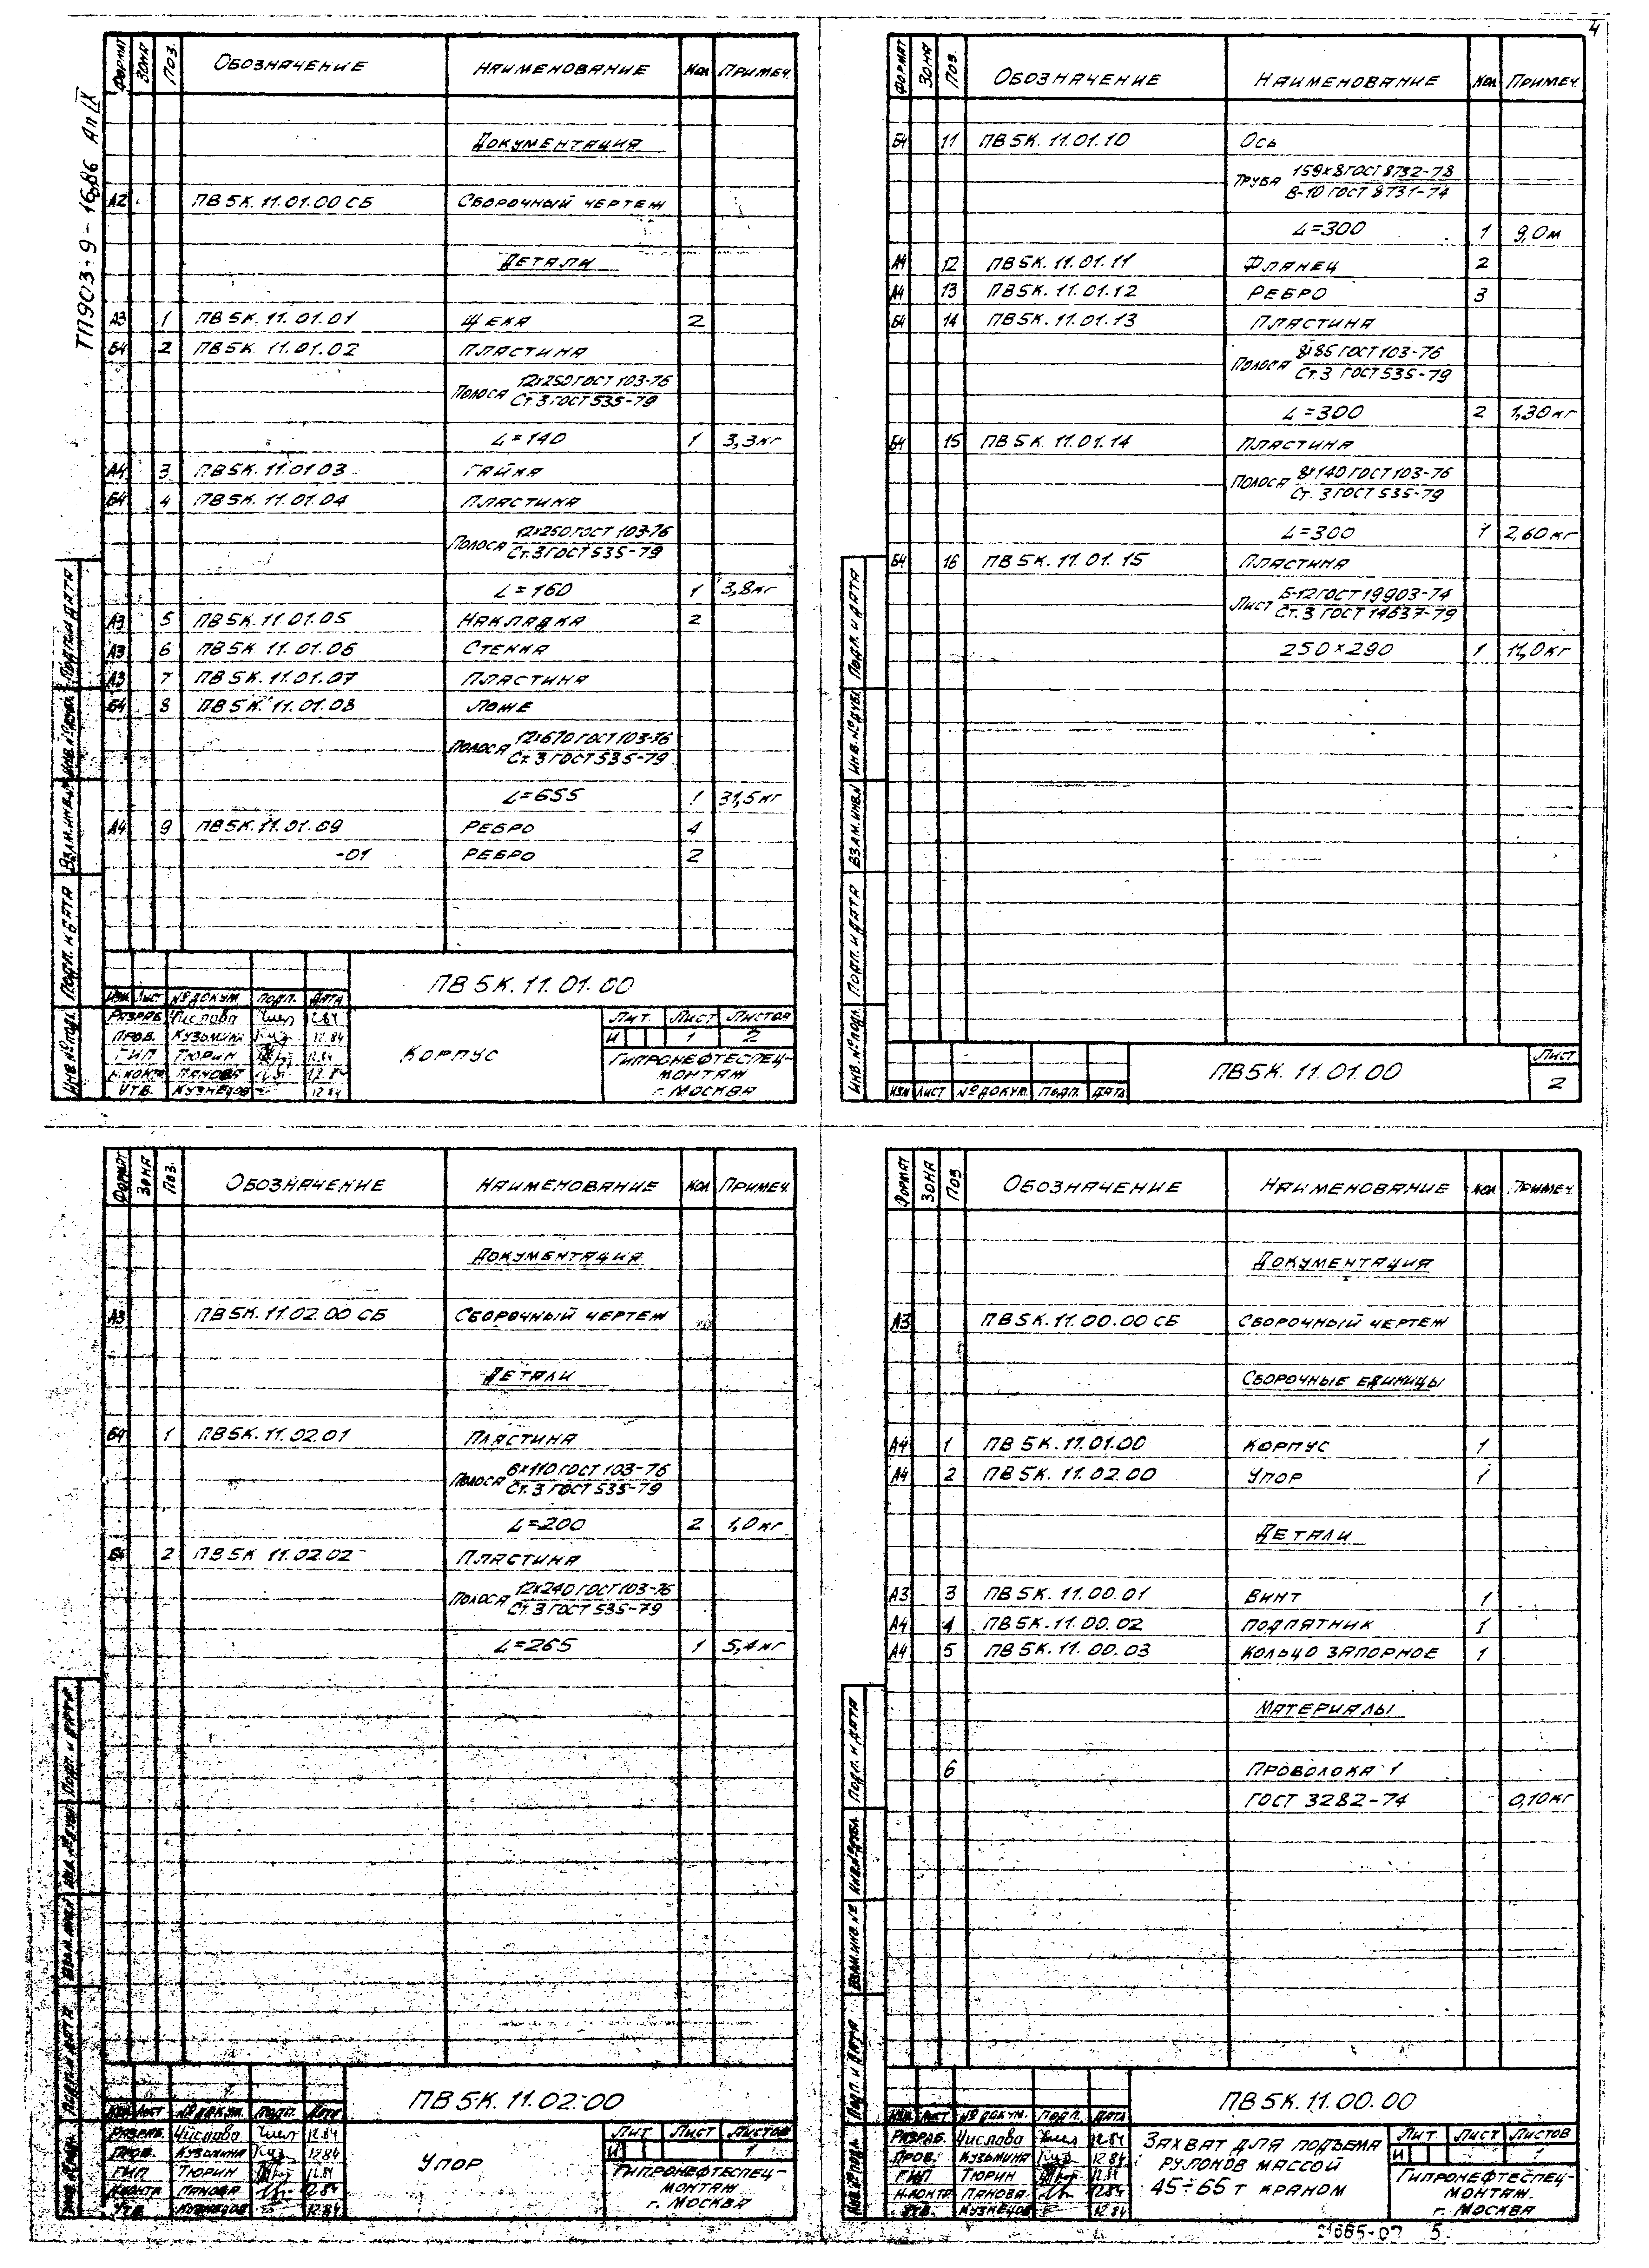 4
ТП903-9-16.86 Ал IX
Формат Зона Поз. Обозначение Наименование Кол Примеч.
Документация
А2 ПВ5К.11.01.00 СБ Сборочный чертеж
Детали
А3 1 ПВ5К.11.01.01 Щека 2
Б4 2 ПВ5К.11.01.02 Пластина
Полоса 12×250 ГОСТ 103-76
Ст.3 ГОСТ 535-79
L=140 1 3,3кг
А4 3 ПВ5К.11.01 03 Гайка
Б4 4 ПВ5К.11.01.04 Пластина
Полоса 12×250 ГОСТ 103-76
Ст.3 ГОСТ 535-79
L=160 1 3,8кг
А3 5 ПВ5К.11.01.05 Накладка 2
А3 6 ПВ5К 11.01.06 Стенка
А3 7 ПВ5К.11.01.07 Пластина
Б4 8 ПВ5К.11.01.08 Ложе
Полоса 12×670 ГОСТ 103-76
Ст.3 ГОСТ 535-79
L=655 1 31,5кг
А4 9 ПВ5К.11.01.09 Ребро 4
-01 Ребро 2
ПВ5К.11.01.00
Изм Лист № докум. Подп. Дата
Разраб. Числова 12.84
Пров. Кузьмина 12.84
ГИП Тюрин 12.84
Н.контр Панова 12.84
Утв. Кузнецов 12.84
Корпус
Лит. Лист Листов
И 1 2
Гипронефтеспец-
монтаж
г. Москва
Инв.№ подл. Подп. и дата Взам.инв.№ Инв.№ дубл. Подп. и дата
Формат Зона Поз. Обозначение Наименование Кол Примеч.
Б4 11 ПВ5К.11.01.10 Ось
Труба 159×8 ГОСТ 8732-78
В-10 ГОСТ 8731-74
L=300 1 9,0м
А4 12 ПВ5К.11.01.11 Фланец 2
А4 13 ПВ5К.11.01.12 Ребро 3
Б4 14 ПВ5К.11.01.13 Пластина
Полоса 8×85 ГОСТ 103-76
Ст.3 ГОСТ 535-79
L=300 2 1,30кг
Б4 15 ПВ5К.11.01.14 Пластина
Полоса 8×140 ГОСТ 103-76
Ст.3 ГОСТ 535-79
L=300 1 2,60кг
Б4 16 ПВ5К.11.01.15 Пластина
Лист Б-12 ГОСТ 19903-74
Ст.3 ГОСТ 14637-79
250×290 1 11,0кг
Изм Лист № докум. Подп. Дата
ПВ5К.11.01.00
Лист
2
Инв.№ подл. Подп. и дата Взам.инв.№ Инв.№ дубл. Подп. и дата
Формат Зона Поз. Обозначение Наименование Кол Примеч.
Документация
А3 ПВ5К.11.02.00 СБ Сборочный чертеж
Детали
Б4 1 ПВ5К.11.02.01 Пластина
Полоса 6×110 ГОСТ 103-76
Ст.3 ГОСТ 535-79
L=200 2 1,0кг
Б4 2 ПВ5К 11.02.02 Пластина
Полоса 12×240 ГОСТ 103-76
Ст.3 ГОСТ 535-79
L=265 1 5,4кг
ПВ5К.11.02.00
Изм Лист № докум. Подп. Дата
Разраб. Числова 12.84
Пров. Кузьмина 12.84
ГИП Тюрин 12.84
Н.контр Панова 12.84
Утв. Кузнецов 12.84
Упор
Лит Лист Листов
И 1
Гипронефтеспец-
монтаж
г. Москва
Подп. и дата
Формат Зона Поз Обозначение Наименование Кол Примеч.
Документация
А3 ПВ5К.11.00.00 СБ Сборочный чертеж
Сборочные единицы
А4 1 ПВ5К.11.01.00 Корпус 1
А4 2 ПВ5К.11.02.00 Упор 1
Детали
А3 3 ПВ5К.11.00.01 Винт 1
А4 4 ПВ5К.11.00.02 Подпятник 1
А4 5 ПВ5К.11.00.03 Кольцо запорное 1
Материалы
6 Проволока 1
ГОСТ 3282-74 0,10кг
ПВ5К.11.00.00
Изм Лист № докум. Подп. Дата
Разраб. Числова 12.84
Пров. Кузьмина 12.84
ГИП Тюрин 12.84
Н.контр Панова 12.84
Утв. Кузнецов 12.84
Захват для подъема
рулонов массой
45÷65 т краном
Лит Лист Листов
И 1
Гипронефтеспец-
монтаж.
г. Москва
Инв.№ подл. Подп. и дата Взам.инв.№ Инв.№ дубл. Подп. и дата
21665-07 5